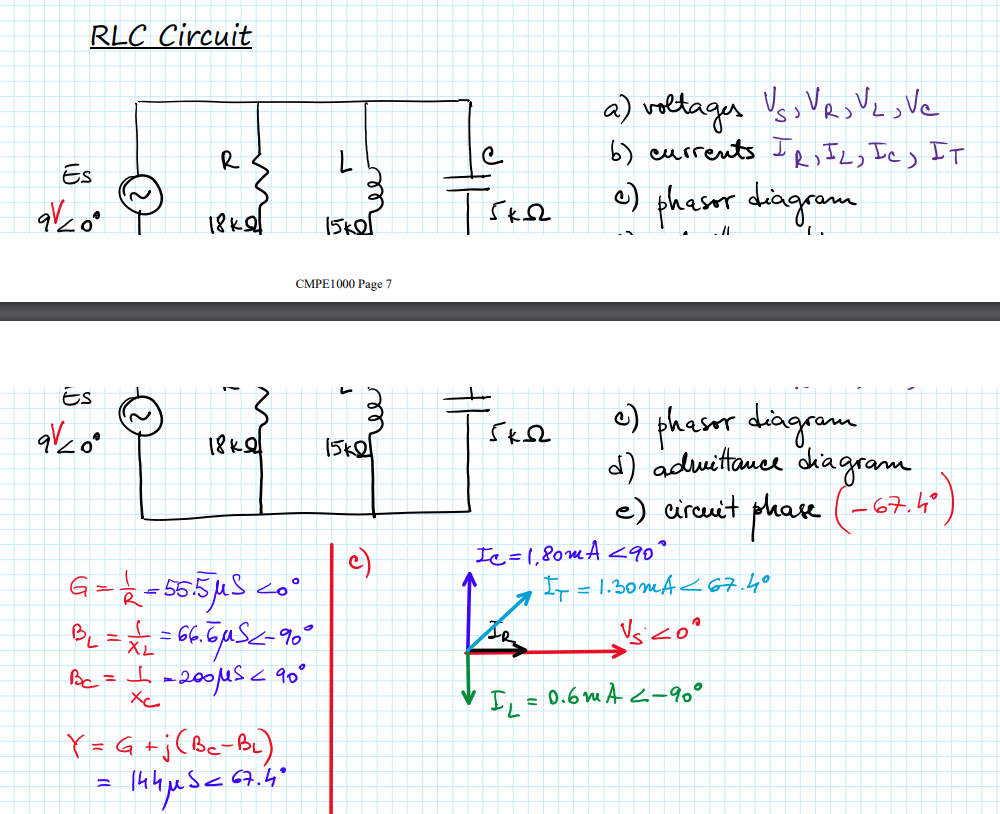 RLC Circuit
a) voltages VS, VR, VL, VC
b) currents IR, IL, IC, IT
c) phasor diagram
R
L
C
Es
9V∠0°
18kΩ
15kΩ
5kΩ
CMPE1000 Page 7
Es
9V∠0°
18kΩ
15kΩ
5kΩ
c) phasor diagram
d) admittance diagram
e) circuit phase (-67.4°)
G = 1/R = 55.5̅μS ∠0°
BL = 1/XL = 66.6̅μS∠-90°
BC = 1/XC = 200μS ∠ 90°
Y = G + j(BC-BL)
= 144μS ∠ 67.4°
c)
IC = 1.80mA ∠90°
IT = 1.30mA ∠ 67.4°
IR
VS ∠0°
IL = 0.6mA ∠-90°